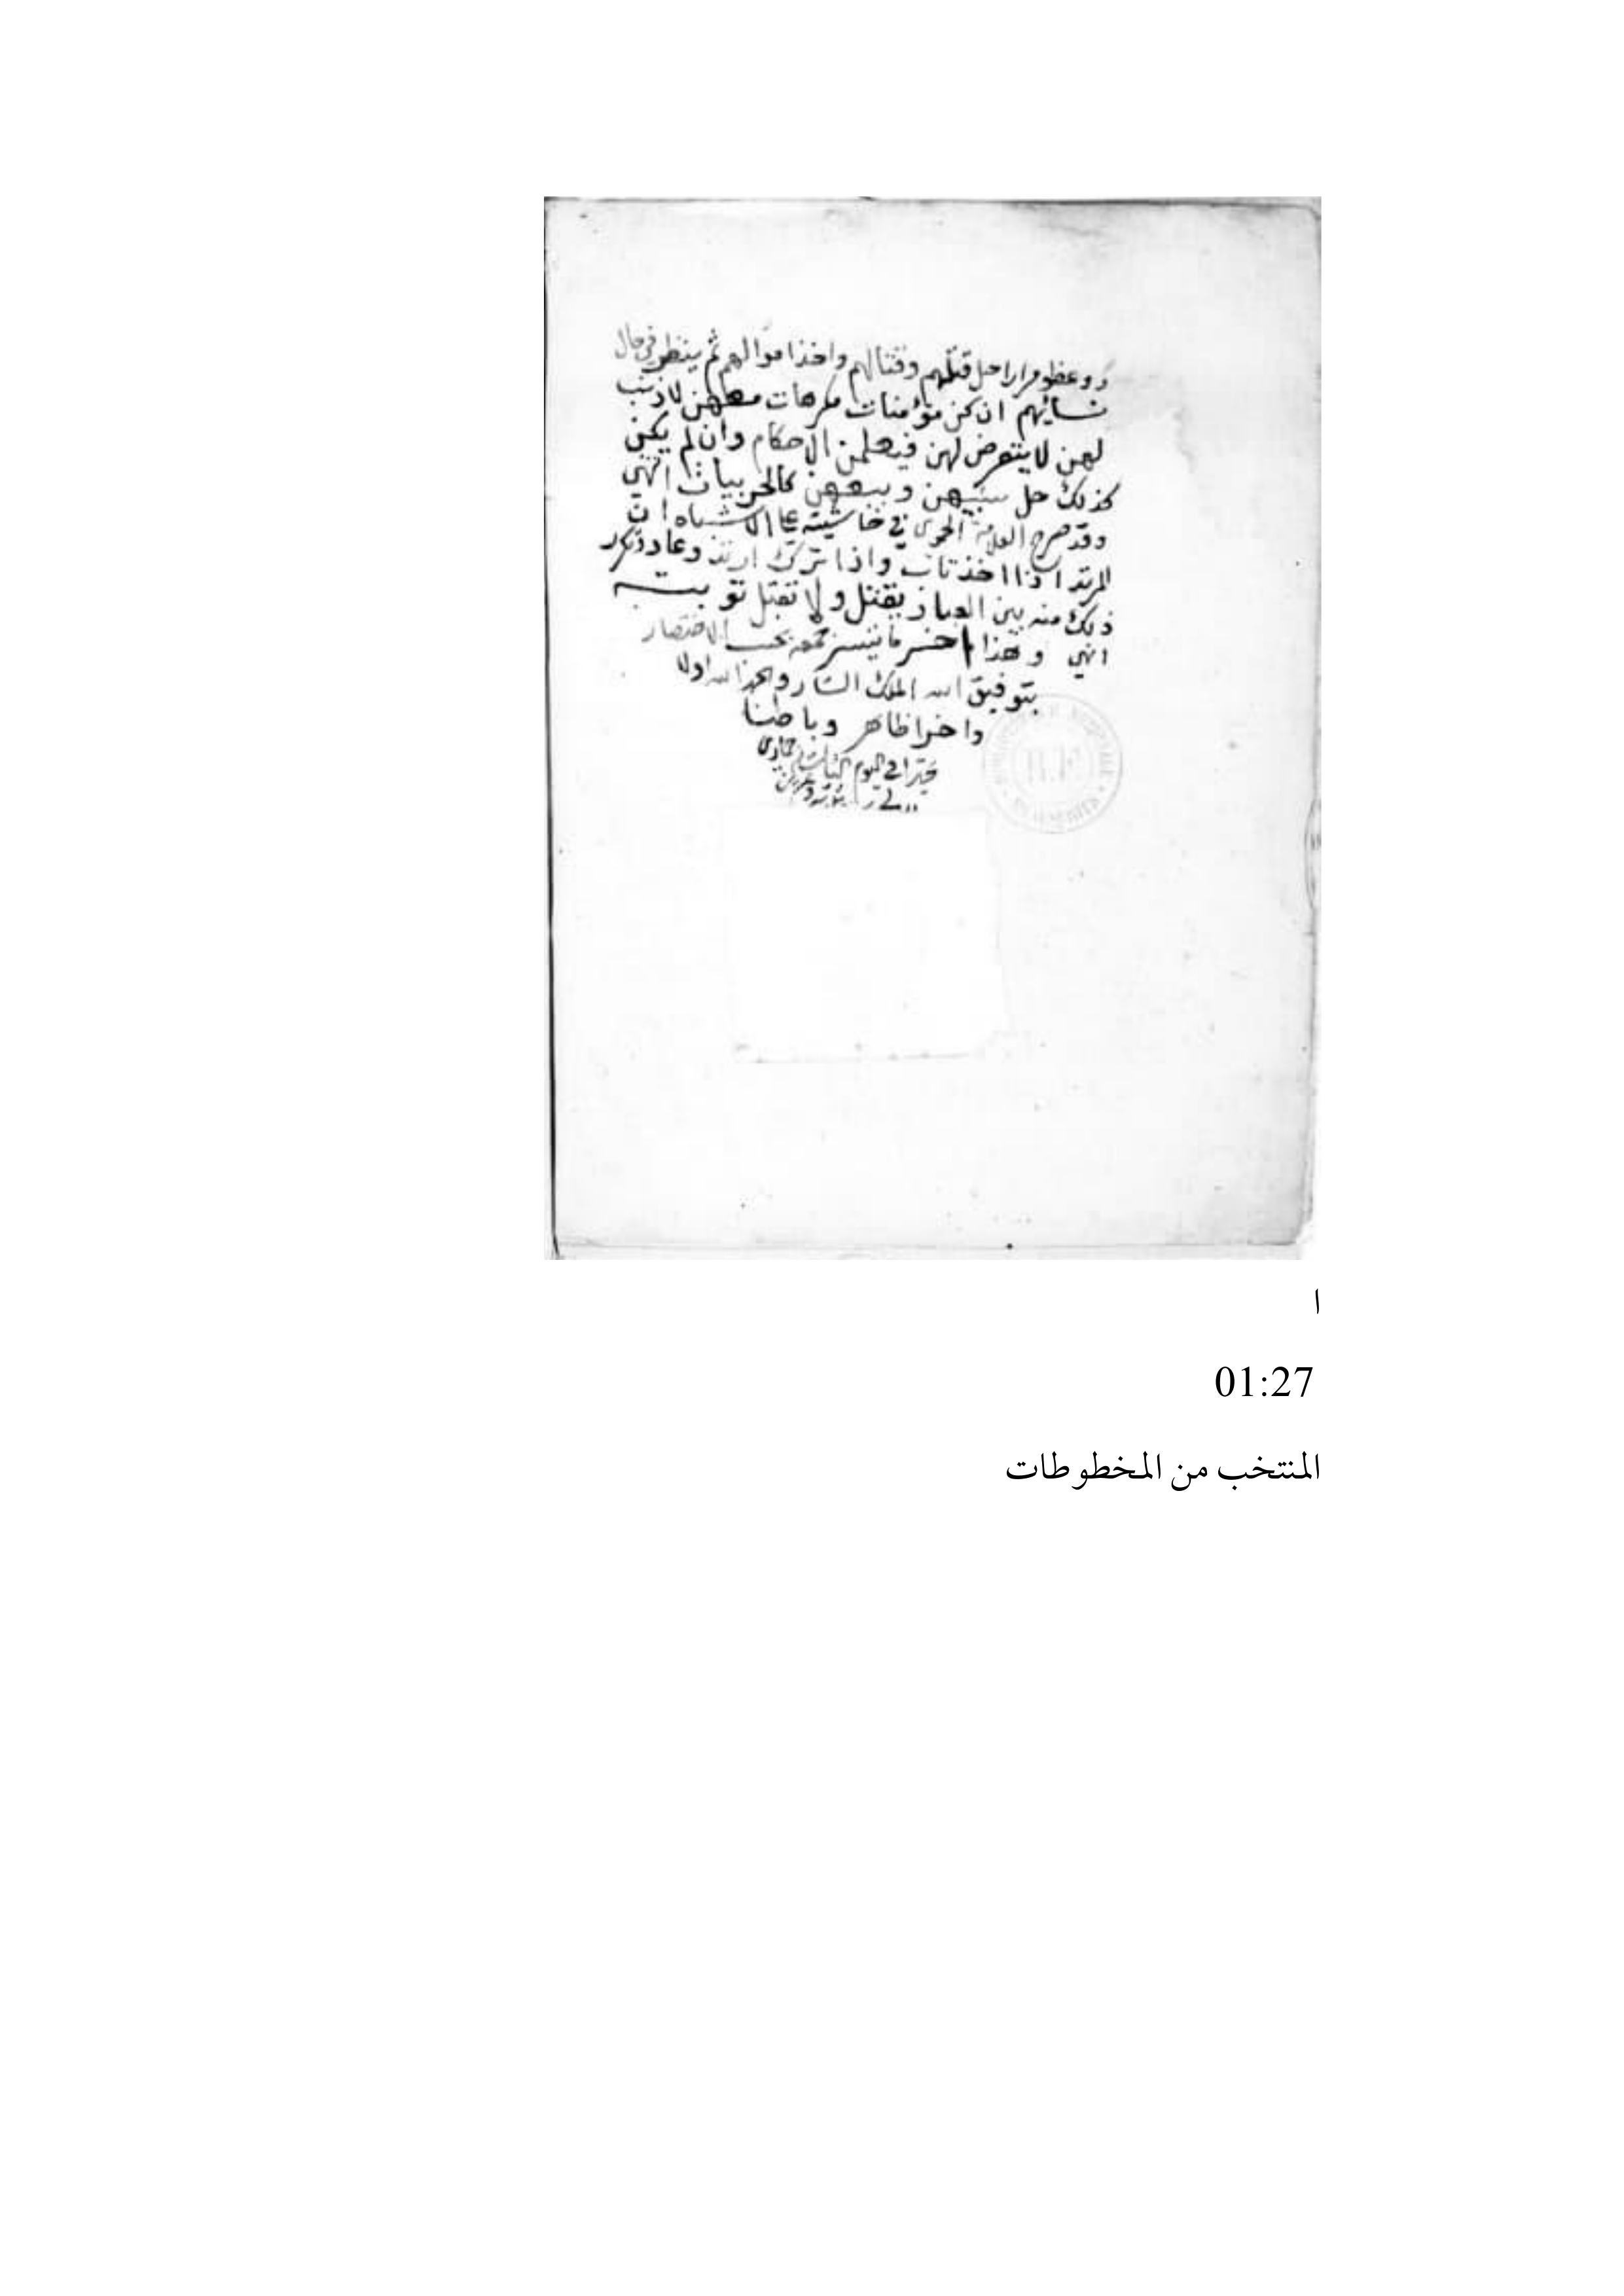 وعظو مرارا حل قتلهم وقتالهم واخذ اموالهم ثم ينظر في حال
نسائهم ان كن مؤمنات مكرهات معهن لا ذنب
لهن لا يتعرض لهن فيعلمن الاحكام وان لم يكن
كذلك حل سبيهن وبيعهن كالحربيات انتهي
وقد صرح العلامة الحموي في حاشيته علي الاشباه ان
المرتد اذا اخذ تاب واذا ترك ارتد وعاد وتكرر
ذلك منه بين العباد يقتل ولا تقبل توبته
انتهي وهذا اخر ما تيسر جمعه بحسب الاختصار
بتوفيق الله الملك الستار والحمد لله اولا
واخرا ظاهر وباطنا
في اليوم جمادى
ا
01:27
المنتخب من المخطوطات